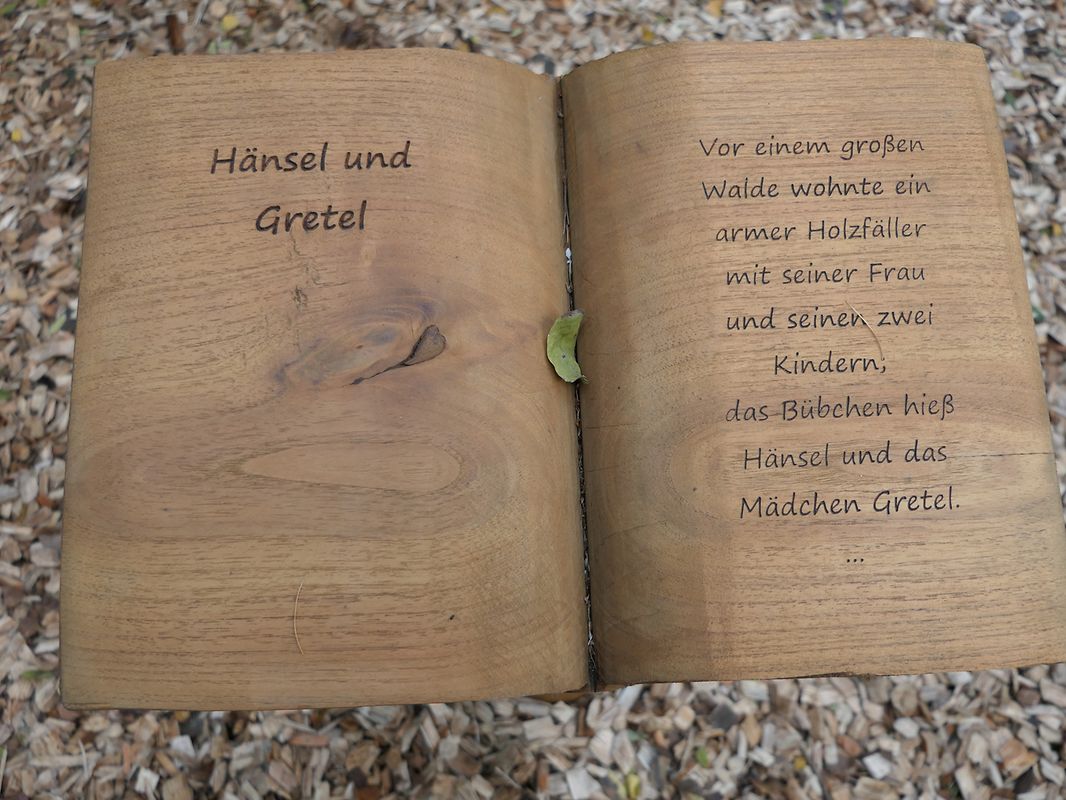 Hänsel und
Gretel
Vor einem großen
Walde wohnte ein
armer Holzfäller
mit seiner Frau
und seinen zwei
Kindern;
das Bübchen hieß
Hänsel und das
Mädchen Gretel.
...